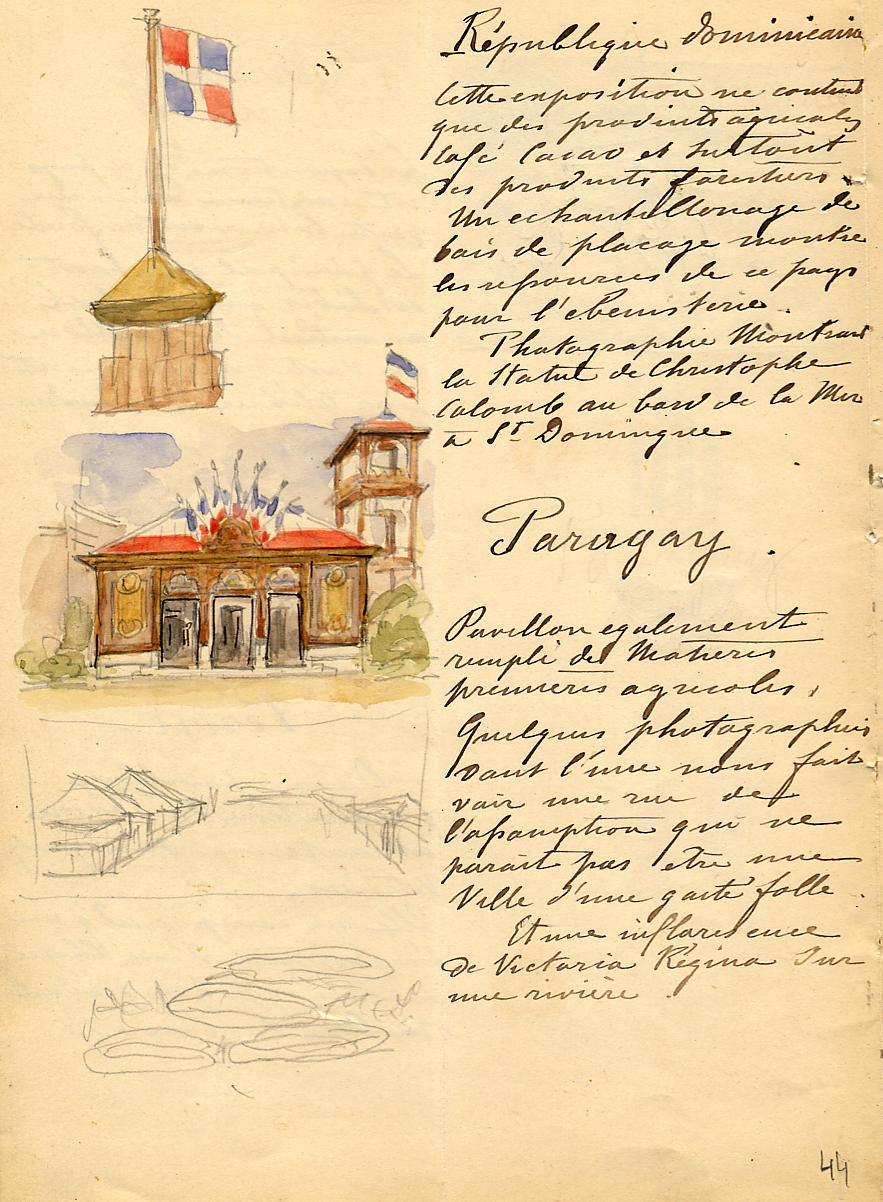 République dominicaine
Cette exposition ne contient
que des produits agricoles
Café Cacao et surtout
des produits forestiers.
Un echantillonage de
bois de placage montre
les ressources de ce pays
pour l'ebenisterie.
Photographie Montrant
la Statue de Christophe
Colomb au bord de la Mer
a St Domingue
Paragay.
Pavillon egalement
rempli de Matieres
premieres agricoles.
Quelques photographies
dont l'une nous fait
voir une rue de
l'assomption qui ne
parait pas etre une
Ville d'une gaité folle.
Et une inflorescence
de Victoria Régina Sur
une rivière.
44